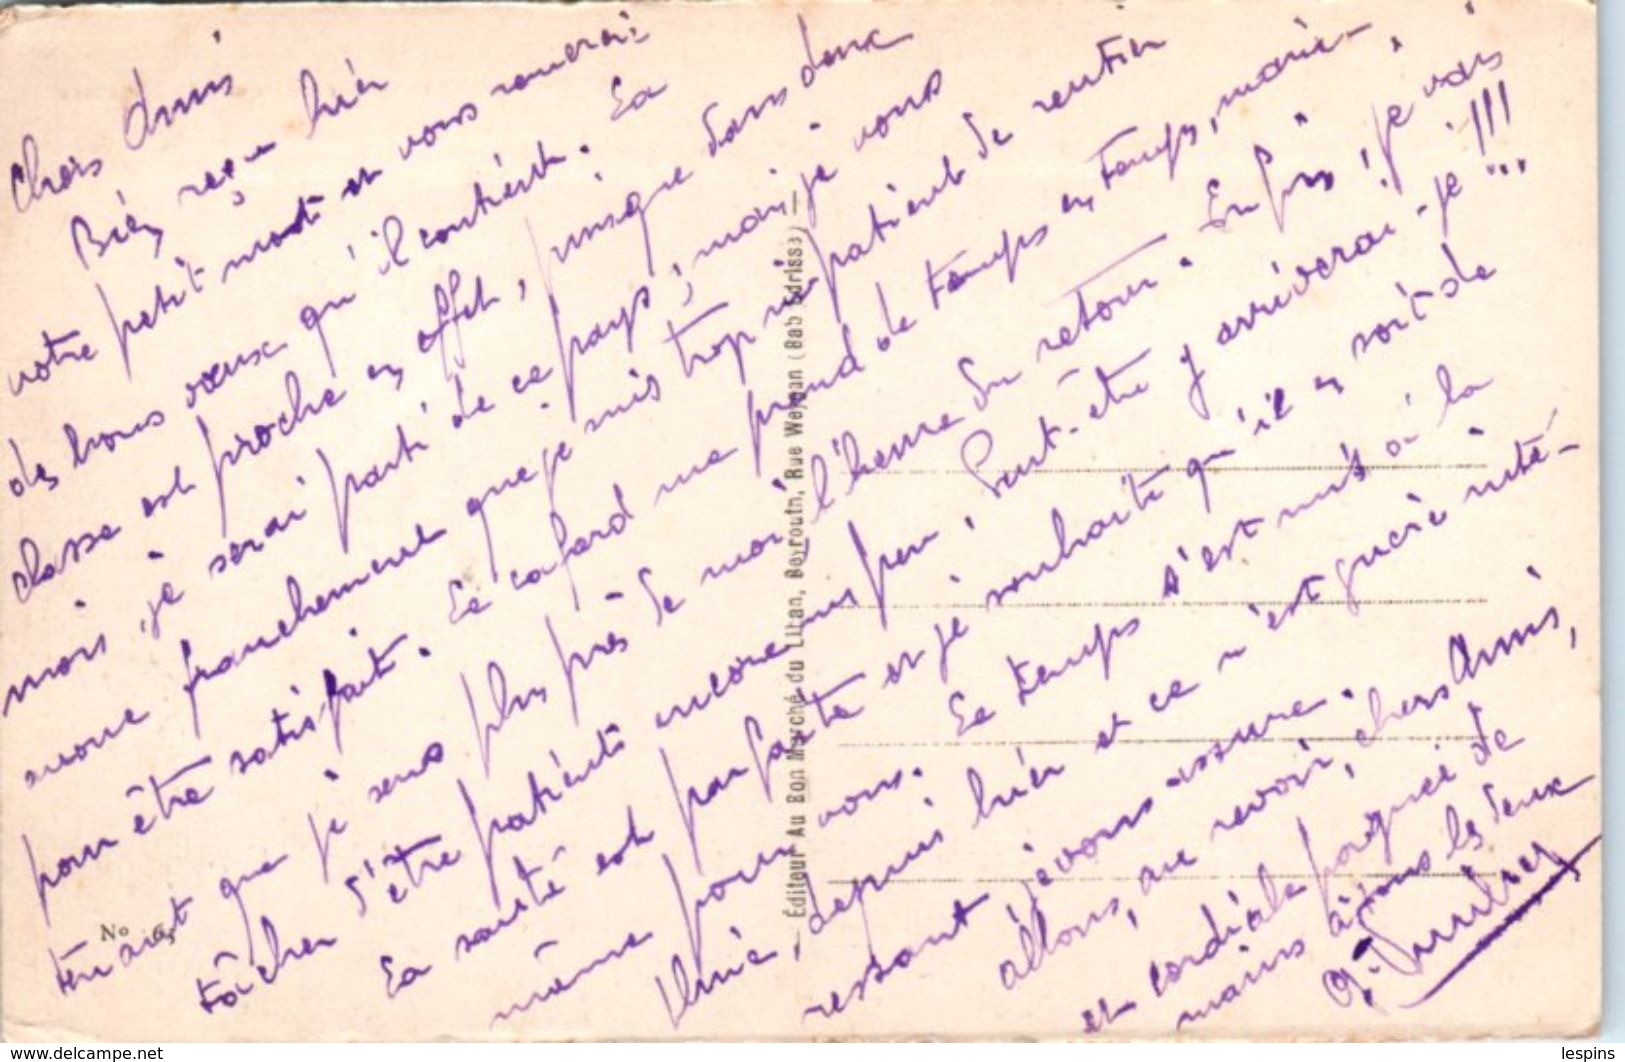 Chers Amis
Bien reçu hier
votre petit mot et vous remercie
des bons vœux qu'il contient. La
classe est proche en effet, puisque dans deux
mois, je serai parti de ce pays, mais je vous
avoue franchement que je suis trop impatient de rentrer
pour être satisfait. Le cafard me prend de temps en temps, mainte-
tenant que je sens plus près de moi l'heure du retour. Enfin, je vais
tâcher d'être patient encore un peu, Peut-être y arriverai-je !!!...
La santé est parfaite et je souhaite qu'il en soit de
même pour vous. Le temps s'est mis à la
pluie, depuis hier et ce n'est guère inté-
ressant je vous assure.
allons, au revoir, chers Amis,
et cordiale poignée de
mains à tous les deux
Éditeur Au Bon Marché du Liban, Beyrouth, Rue Weygan (Bab Edriss)
No 6
www.delcampe.net
lespins